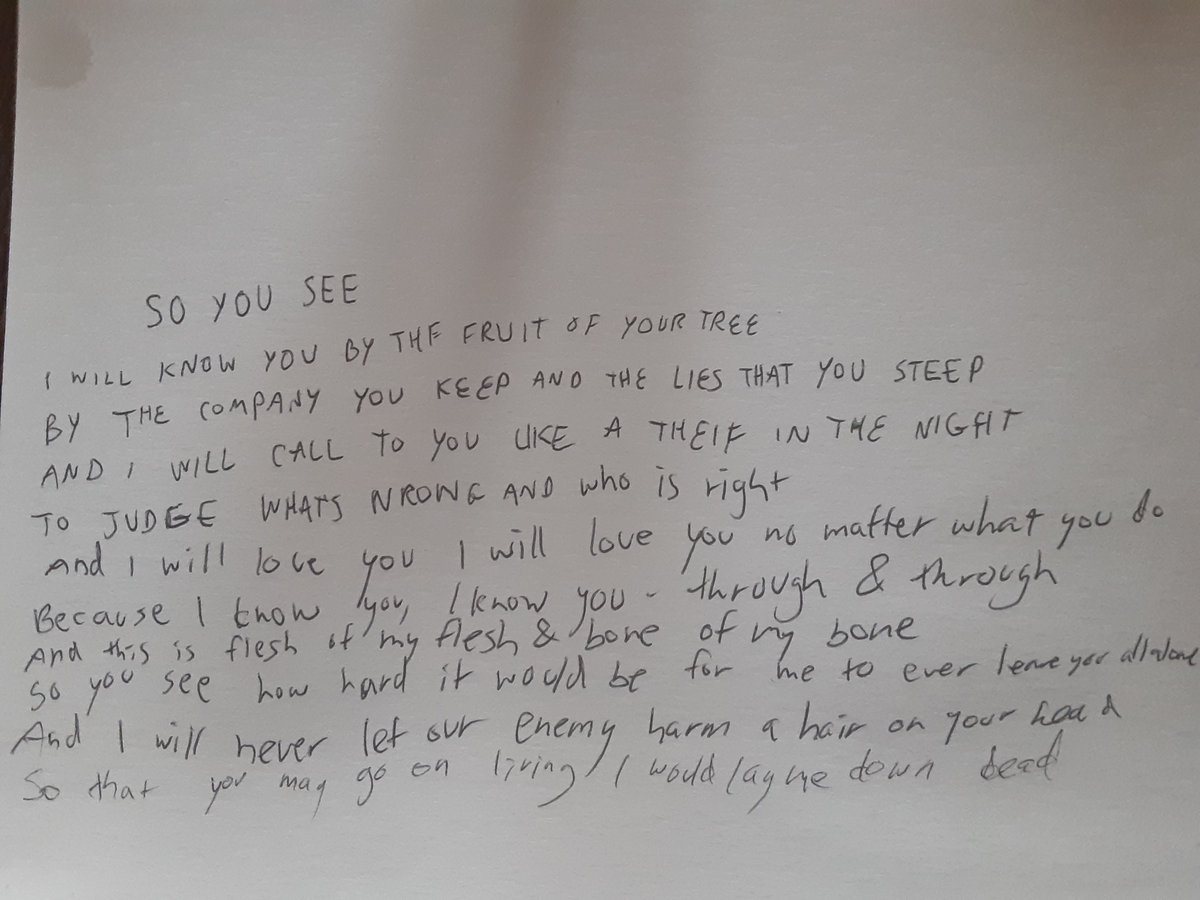 SO YOU SEE
I WILL KNOW YOU BY THE FRUIT OF YOUR TREE
BY THE COMPANY YOU KEEP AND THE LIES THAT YOU STEEP
AND I WILL CALL TO YOU LIKE A THEIF IN THE NIGHT
TO JUDGE WHATS WRONG AND who is right
And I will love you I will love you no matter what you do
Because I know you, I know you - through & through
And this is flesh of my flesh & bone of my bone
So you see how hard it would be for me to ever leave you all alone
And I will never let our enemy harm a hair on your head
So that you may go on living I would lay me down dead